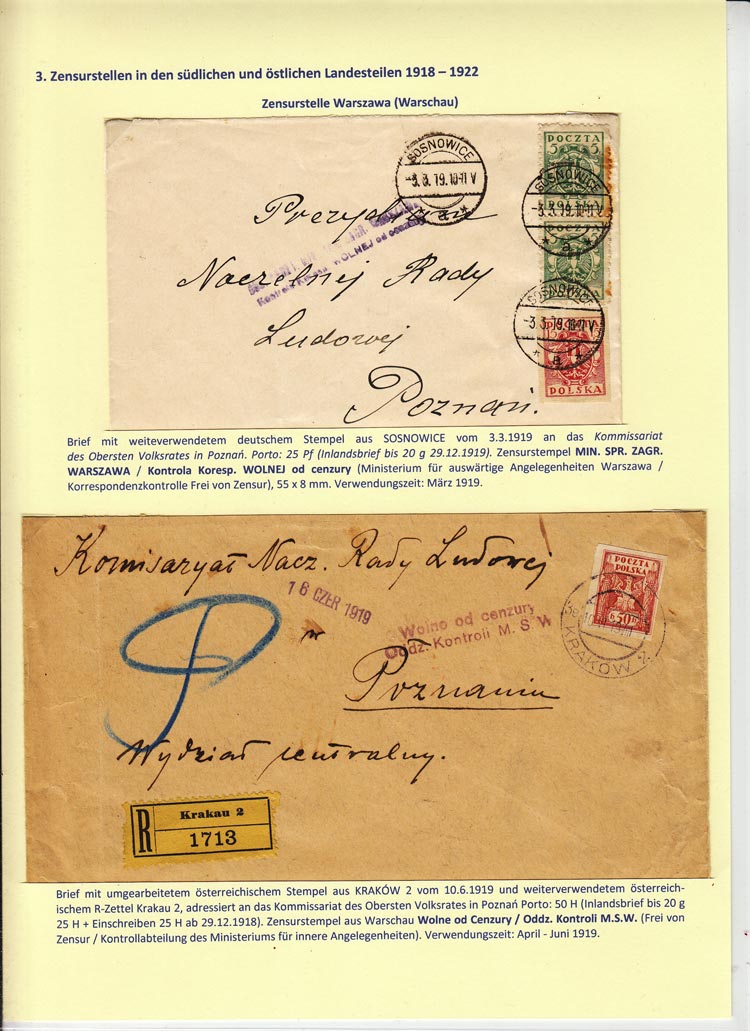 3. Zensurstellen in den südlichen und östlichen Landesteilen 1918 – 1922
Zensurstelle Warszawa (Warschau)
SOSNOWICE
-3.3.19.10-11 V
* a *
POCZTA
5 5
SOSNOWICE
-3.3.19.10-11 V
POCZTA
* a *
SOSNOWICE
-3.3.19.10-11 V
* a *
POLSKA
Kontrola Koresp. WOLNEJ od cenzury
Prezydium
Naczelnej Rady
Ludowej
Poznań.
Brief mit weiteverwendetem deutschem Stempel aus SOSNOWICE vom 3.3.1919 an das Kommissariat
des Obersten Volksrates in Poznań. Porto: 25 Pf (Inlandsbrief bis 20 g 29.12.1919). Zensurstempel MIN. SPR. ZAGR.
WARSZAWA / Kontrola Koresp. WOLNEJ od cenzury (Ministerium für auswärtige Angelegenheiten Warszawa /
Korrespondenzkontrolle Frei von Zensur), 55 x 8 mm. Verwendungszeit: März 1919.
Komisaryat Nacz. Rady Ludowej
16 CZER 1919
w
Wolno od cenzury
Oddz. Kontroli M. S W
POCZTA
POLSKA
50
KRAKÓW 2
Poznaniu
Wydział centralny.
R
Krakau 2
1713
Brief mit umgearbeitetem österreichischem Stempel aus KRAKÓW 2 vom 10.6.1919 und weiterverwendetem österreich-
ischem R-Zettel Krakau 2, adressiert an das Kommissariat des Obersten Volksrates in Poznań Porto: 50 H (Inlandsbrief bis 20 g
25 H + Einschreiben 25 H ab 29.12.1918). Zensurstempel aus Warschau Wolne od Cenzury / Oddz. Kontroli M.S.W. (Frei von
Zensur / Kontrollabteilung des Ministeriums für innere Angelegenheiten). Verwendungszeit: April - Juni 1919.